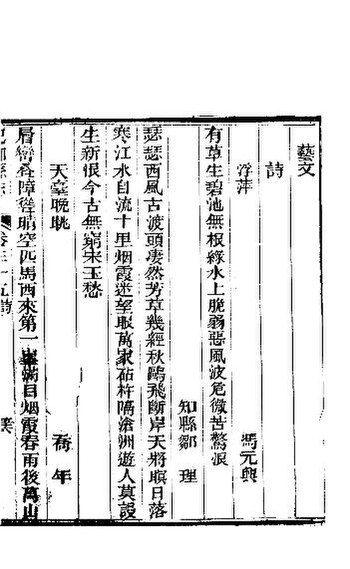 藝文
詩
浮萍 馮元興
有草生碧池無根綠水上脆弱惡風波危微苦驚浪
知縣鄒 理
瑟瑟西風古渡頭凄然芳草幾經秋鷗飛斷岸天將暝日落
寒江水自流十里烟霞迷望眼萬家砧杵隔滄洲遊人莫設
生新恨今古無窮宋玉愁
天臺晚眺 喬 年
層巒叠障聳晴空匹馬西來第一峯滿目烟霞春雨後萬山
卷三十五詩